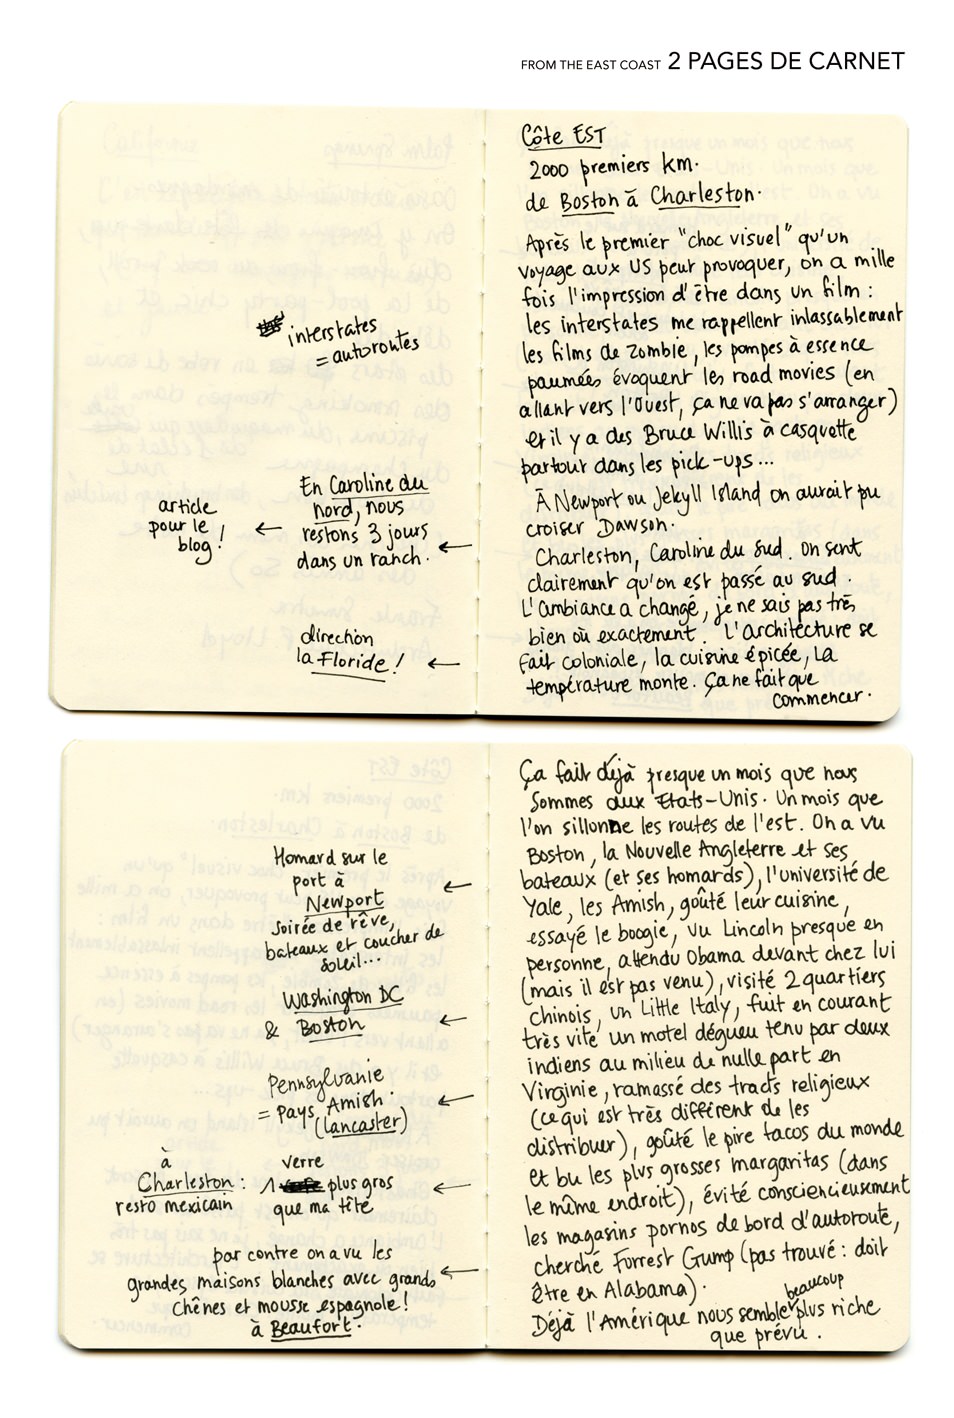 FROM THE EAST COAST 2 PAGES DE CARNET
interstates
= autoroutes
article
pour le
blog !
←
En Caroline du
nord, nous
restons 3 jours
dans un ranch.
←
direction
la Floride !
←
Côte EST
2000 premiers km.
de Boston à Charleston.
Après le premier "choc visuel" qu'un
voyage aux US peut provoquer, on a mille
fois l'impression d'être dans un film :
les interstates me rappellent inlassablement
les films de zombie, les pompes à essence
paumées évoquent les road movies (en
allant vers l'Ouest, ça ne va pas s'arranger)
et il y a des Bruce Willis à casquette
partout dans les pick-ups...
À Newport ou Jekyll Island on aurait pu
croiser Dawson.
Charleston, Caroline du Sud. On sent
clairement qu'on est passé au sud.
L'ambiance a changé, je ne sais pas très
bien où exactement. L'architecture se
fait coloniale, la cuisine épicée, la
température monte. Ça ne fait que
commencer.
Homard sur le
port à
Newport
Soirée de rêve,
bateaux et coucher de
soleil...
←
Washington DC
& Boston
←
Pennsylvanie
= pays Amish
(Lancaster)
←
à
Charleston : 1 verre plus gros
resto mexicain que ma tête
←
par contre on a vu les
grandes maisons blanches avec grands
chênes et mousse espagnole !
à Beaufort.
←
Ça fait déjà presque un mois que nous
sommes aux Etats-Unis. Un mois que
l'on sillonne les routes de l'est. On a vu
Boston, la Nouvelle Angleterre et ses
bateaux (et ses homards), l'université de
Yale, les Amish, goûté leur cuisine,
essayé le boogie, vu Lincoln presque en
personne, attendu Obama devant chez lui
(mais il est pas venu), visité 2 quartiers
chinois, un Little Italy, fuit en courant
très vite un motel dégueu tenu par deux
indiens au milieu de nulle part en
Virginie, ramassé des tracts religieux
(ce qui est très différent de les
distribuer), goûté le pire tacos du monde
et bu les plus grosses margaritas (dans
le même endroit), évité consciencieusement
les magasins pornos de bord d'autoroute,
cherché Forrest Gump (pas trouvé : doit
être en Alabama).
Déjà l'Amérique nous semble beaucoup plus riche
que prévu.